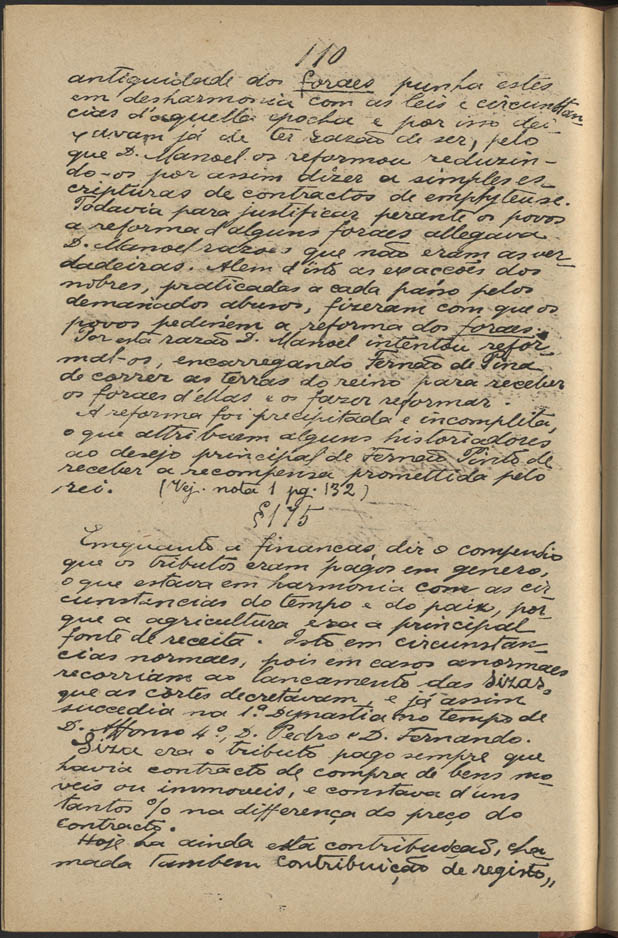 110
antiguidade dos foraes punha estes
em desharmonia com as leis e circunstan-
cias d'aquella epocha e por isso dei-
xavam já de ter razão de ser, pelo
que D. Manoel os reformou reduzin-
do-os por assim dizer a simples es-
cripturas de contractos de emphyteuse.
Todavia para justificar perante os povos
a reforma d'alguns foraes allegava
D. Manoel razoes que não eram as ver-
dadeiras. Alem d'isto as exacções dos
nobres, praticadas a cada passo pelos
demasiados abusos, fizeram com que os
povos pedissem a reforma dos foraes.
Por esta razão D. Manoel intentou refor-
mal-os, encarregando Fernão de Pina
de correr as terras do reino para receber
os foraes d'ellas e os fazer reformar.
A reforma foi precipitada e incompleta,
o que attribuem alguns historiadores
ao desejo principal de Fernão Pinto de
receber a recompensa promettida pelo
rei. (Vej. nota 1 pg. 132)
§175
Emquanto a financas, dir o compendio
que os tributos eram pagos em genero,
o que estava em harmonia com as cir
cunstancias do tempo e do paiz, por-
que a agricultura era a principal
fonte de receita. Isto em circunstan-
cias normaes, pois em casos anormaes
recorriam ao lancamento das sizas,
que as côrtes decretavam, e já assim
succedia na 1.ª Dynastia no tempo de
D. Affonso 4º, D. Pedro e D. Fernando.
Siza era o tributo pago sempre que
havia contracto de compra de bens mo-
veis ou immoveis, e constava d'uns
tantos % na differença do preço do
contracto.
Hoje ha ainda esta contribuicaõ, cha-
mada tambem contribuição de registo,,